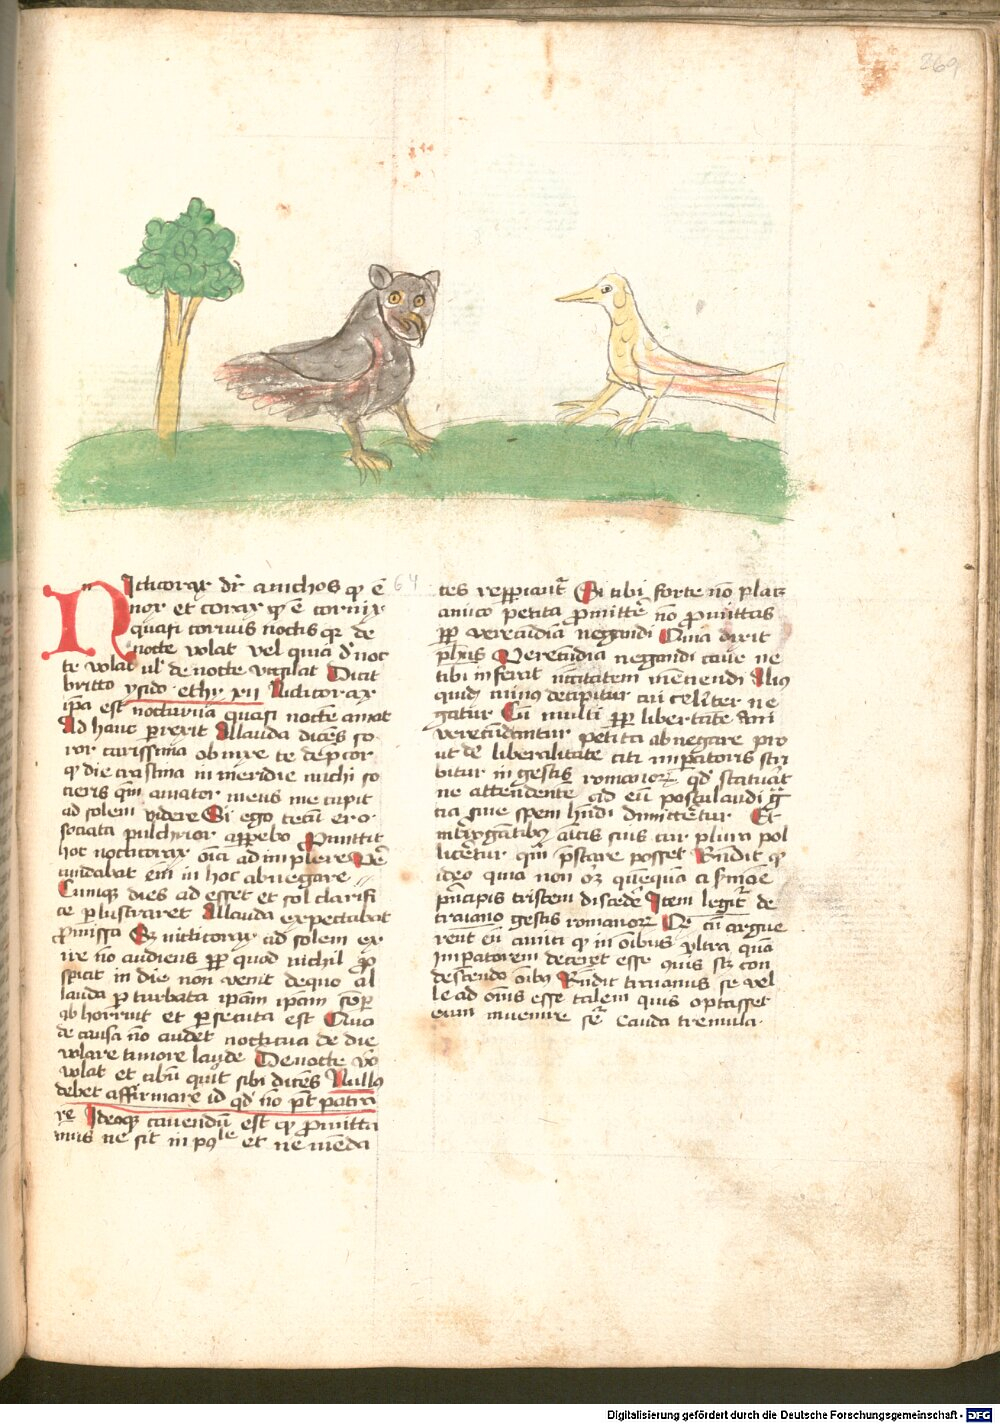 269
Nicticorax dr̄ a nichos qp̄ ē 64
nox et corax qp̄ ē cornix
quasi corvus noctis qr̄ de
nocte volat vel quia d' noc
te volat ul' de nocte vigilat Dicit
britto ysido ethy xii Nicticorax
ip̄a est nocturna quasi noctē amat
Ad hanc p̄rexit Allauda dicēs so
ror carissima obnixe te dēp̄cor
qp̄ die crastina in meridie michi so
cieris qm̄ amator meus me cupit
ad solem videre Si ego tecū ero
sociata pulchrior app̄ebo Promittit
hoc nocticorax oīa adimplere Vē
cundabat eī in hoc abnegare
Cumqz dies ad esset et sol clarifi
ce p̄lustraret Allauda expectabat
p̄missa Sz nicticorax ad solem ex
ire nō audens pp̄ quod nichil p̄
spicit in die non venit de quo al
lauda p̄turbata ipam ipam semp̄
abhorruit et p̄secuta est Qua
de causa nō audet noctua de die
volare timore laude De nocte vō
volat et cibū querit sibi dicēs Nullus
debet affirmare id qd' nō pt̄ patra
re Ideoqz cavendū est qp̄ promitta
mus ne sit inpole et ne menda
ces repiant̄ Si tibi forte nō placz
amice petita p̄mittere nō promittas
pp̄ verecūdia negandi Cuia dixit
Verecūdia negandi cave ne
tibi inferat n̄cc̄itatem menendi Alius
quid minus decipitur cui celit̄er ne
gatur Cū multi pp̄ libertatē aīi
verecundantur petita abnegare pro
ut de liberalitate titi imp̄atoris scri
bitur in gestis romanorz qd' statuāt
ne attendente ad eū postulandi grā
cia sine spem hn̄di dimitteretur Et
in̄rogantibus amicis suis cur plura pol
liceretur qm̄ p̄stare posset Rn̄dit qp̄
ideo quia non oz quēquā a sermōe
p̄ncipis tristem discedē Item legit̄ de
traiano gestis romanorz Qr̄ cū argue
rent eū amici qp̄ in oībus ultra quā
imp̄atorem deceret esse quis sz con
descendo oībus Rn̄dit traianus se vel
le ad oms esse talem quis optasset
eum invenire sē Cauda tremula
Digitalisierung gefördert durch die Deutsche Forschungsgemeinschaft - DFG